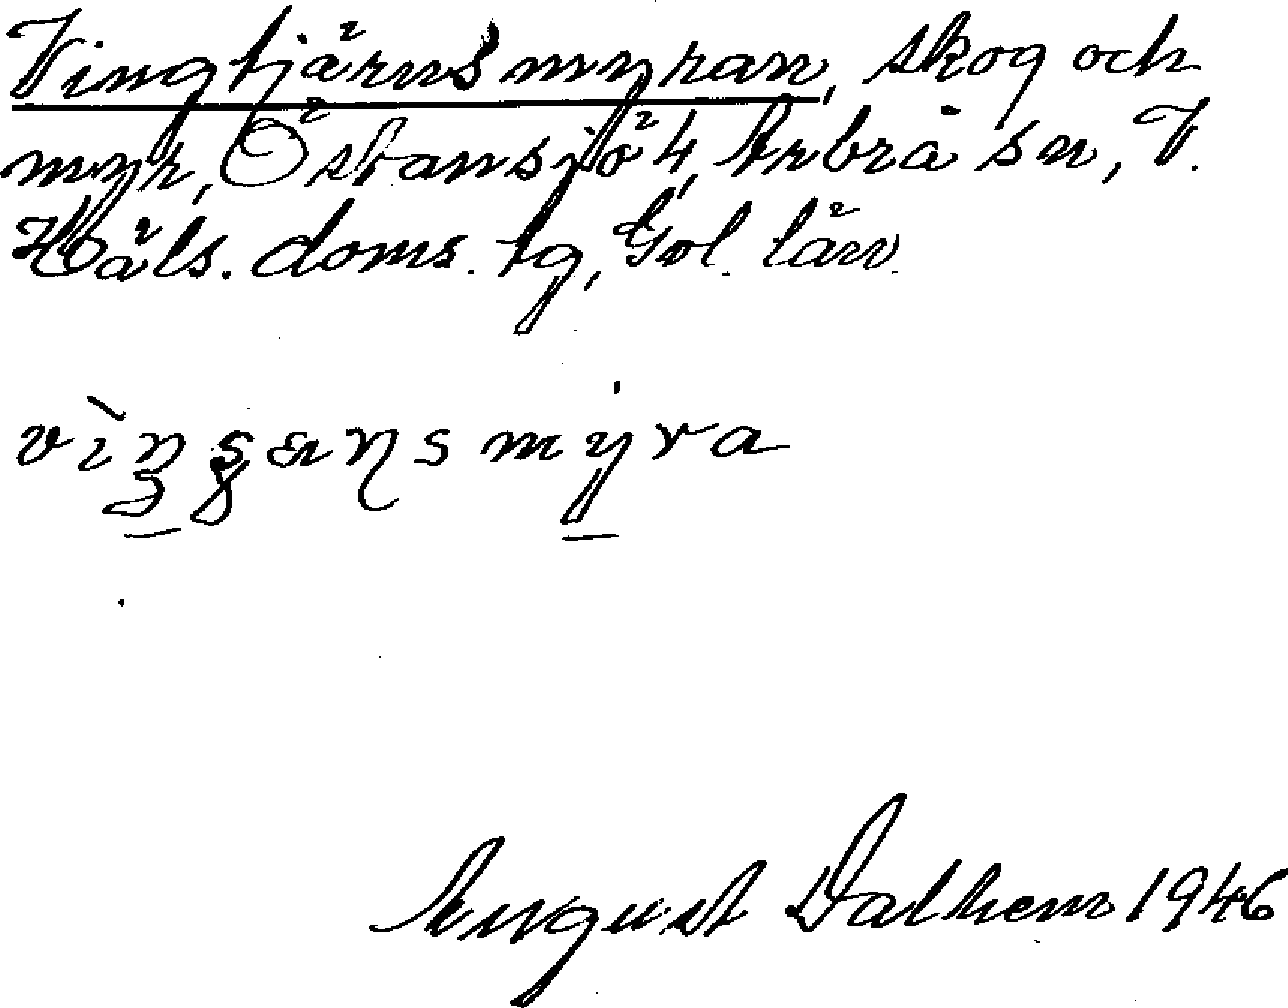 Vingtjärnsmyran, skog och
myr, Östansjö 4, Arbrå sn, V.
Häls. doms. tg, Gvl. län.
August Dalhem 1946